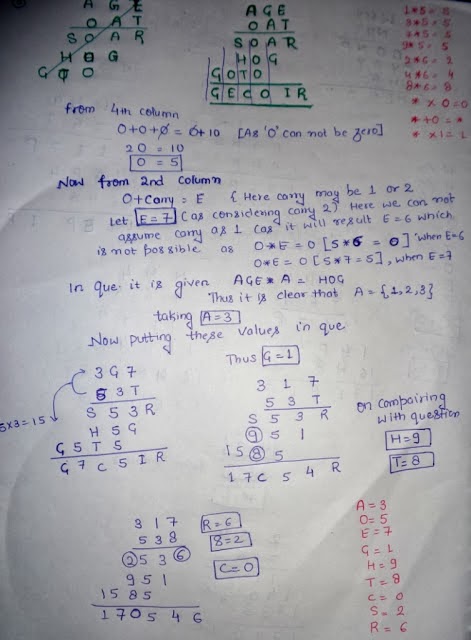 A G E
O A T
S O A R
H O G
G O T O
A G E
O A T
S O A R
H O G
G O T O
G E C O I R
1*5=5
3*5=5
7*5=5
9*5=5
2*6=2
4*6=4
8*6=8
* x 0=0
*+0=*
*x1=1
from 4th column
O+O+0 = 0+10 [As 'O' can not be zero]
2O = 10
O = 5
Now from 2nd column
O+Carry = E { Here carry may be 1 or 2
Let E=7 (as considering carry 2) Here we can not
assume carry as 1 (as it will result E=6 which
is not possible as O*E=O [5*6=0] when E=6
O*E=O [5*7=5], when E=7
In que. it is given AGE*A = HOG
Thus it is clear that A={1,2,3}
taking A=3
Now putting these values in que
3 G 7
5 3 T
5x3=15
S 5 3 R
H 5 G
G 5 T 5
G 7 C 5 I R
Thus G=1
3 1 7
5 3 T
S 5 3 R
9 5 1
1 5 8 5
1 7 C 5 4 R
on compairing
with question
H=9
T=8
3 1 7
5 3 8
2 5 3 6
9 5 1
1 5 8 5
1 7 0 5 4 6
R=6
8=2
C=0
A=3
O=5
E=7
G=1
H=9
T=8
C=0
S=2
R=6